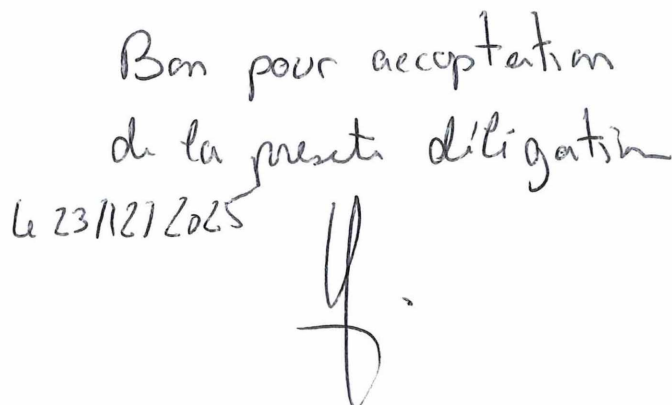 Bon pour acceptation
de la présente délégation
le 23/12/2025